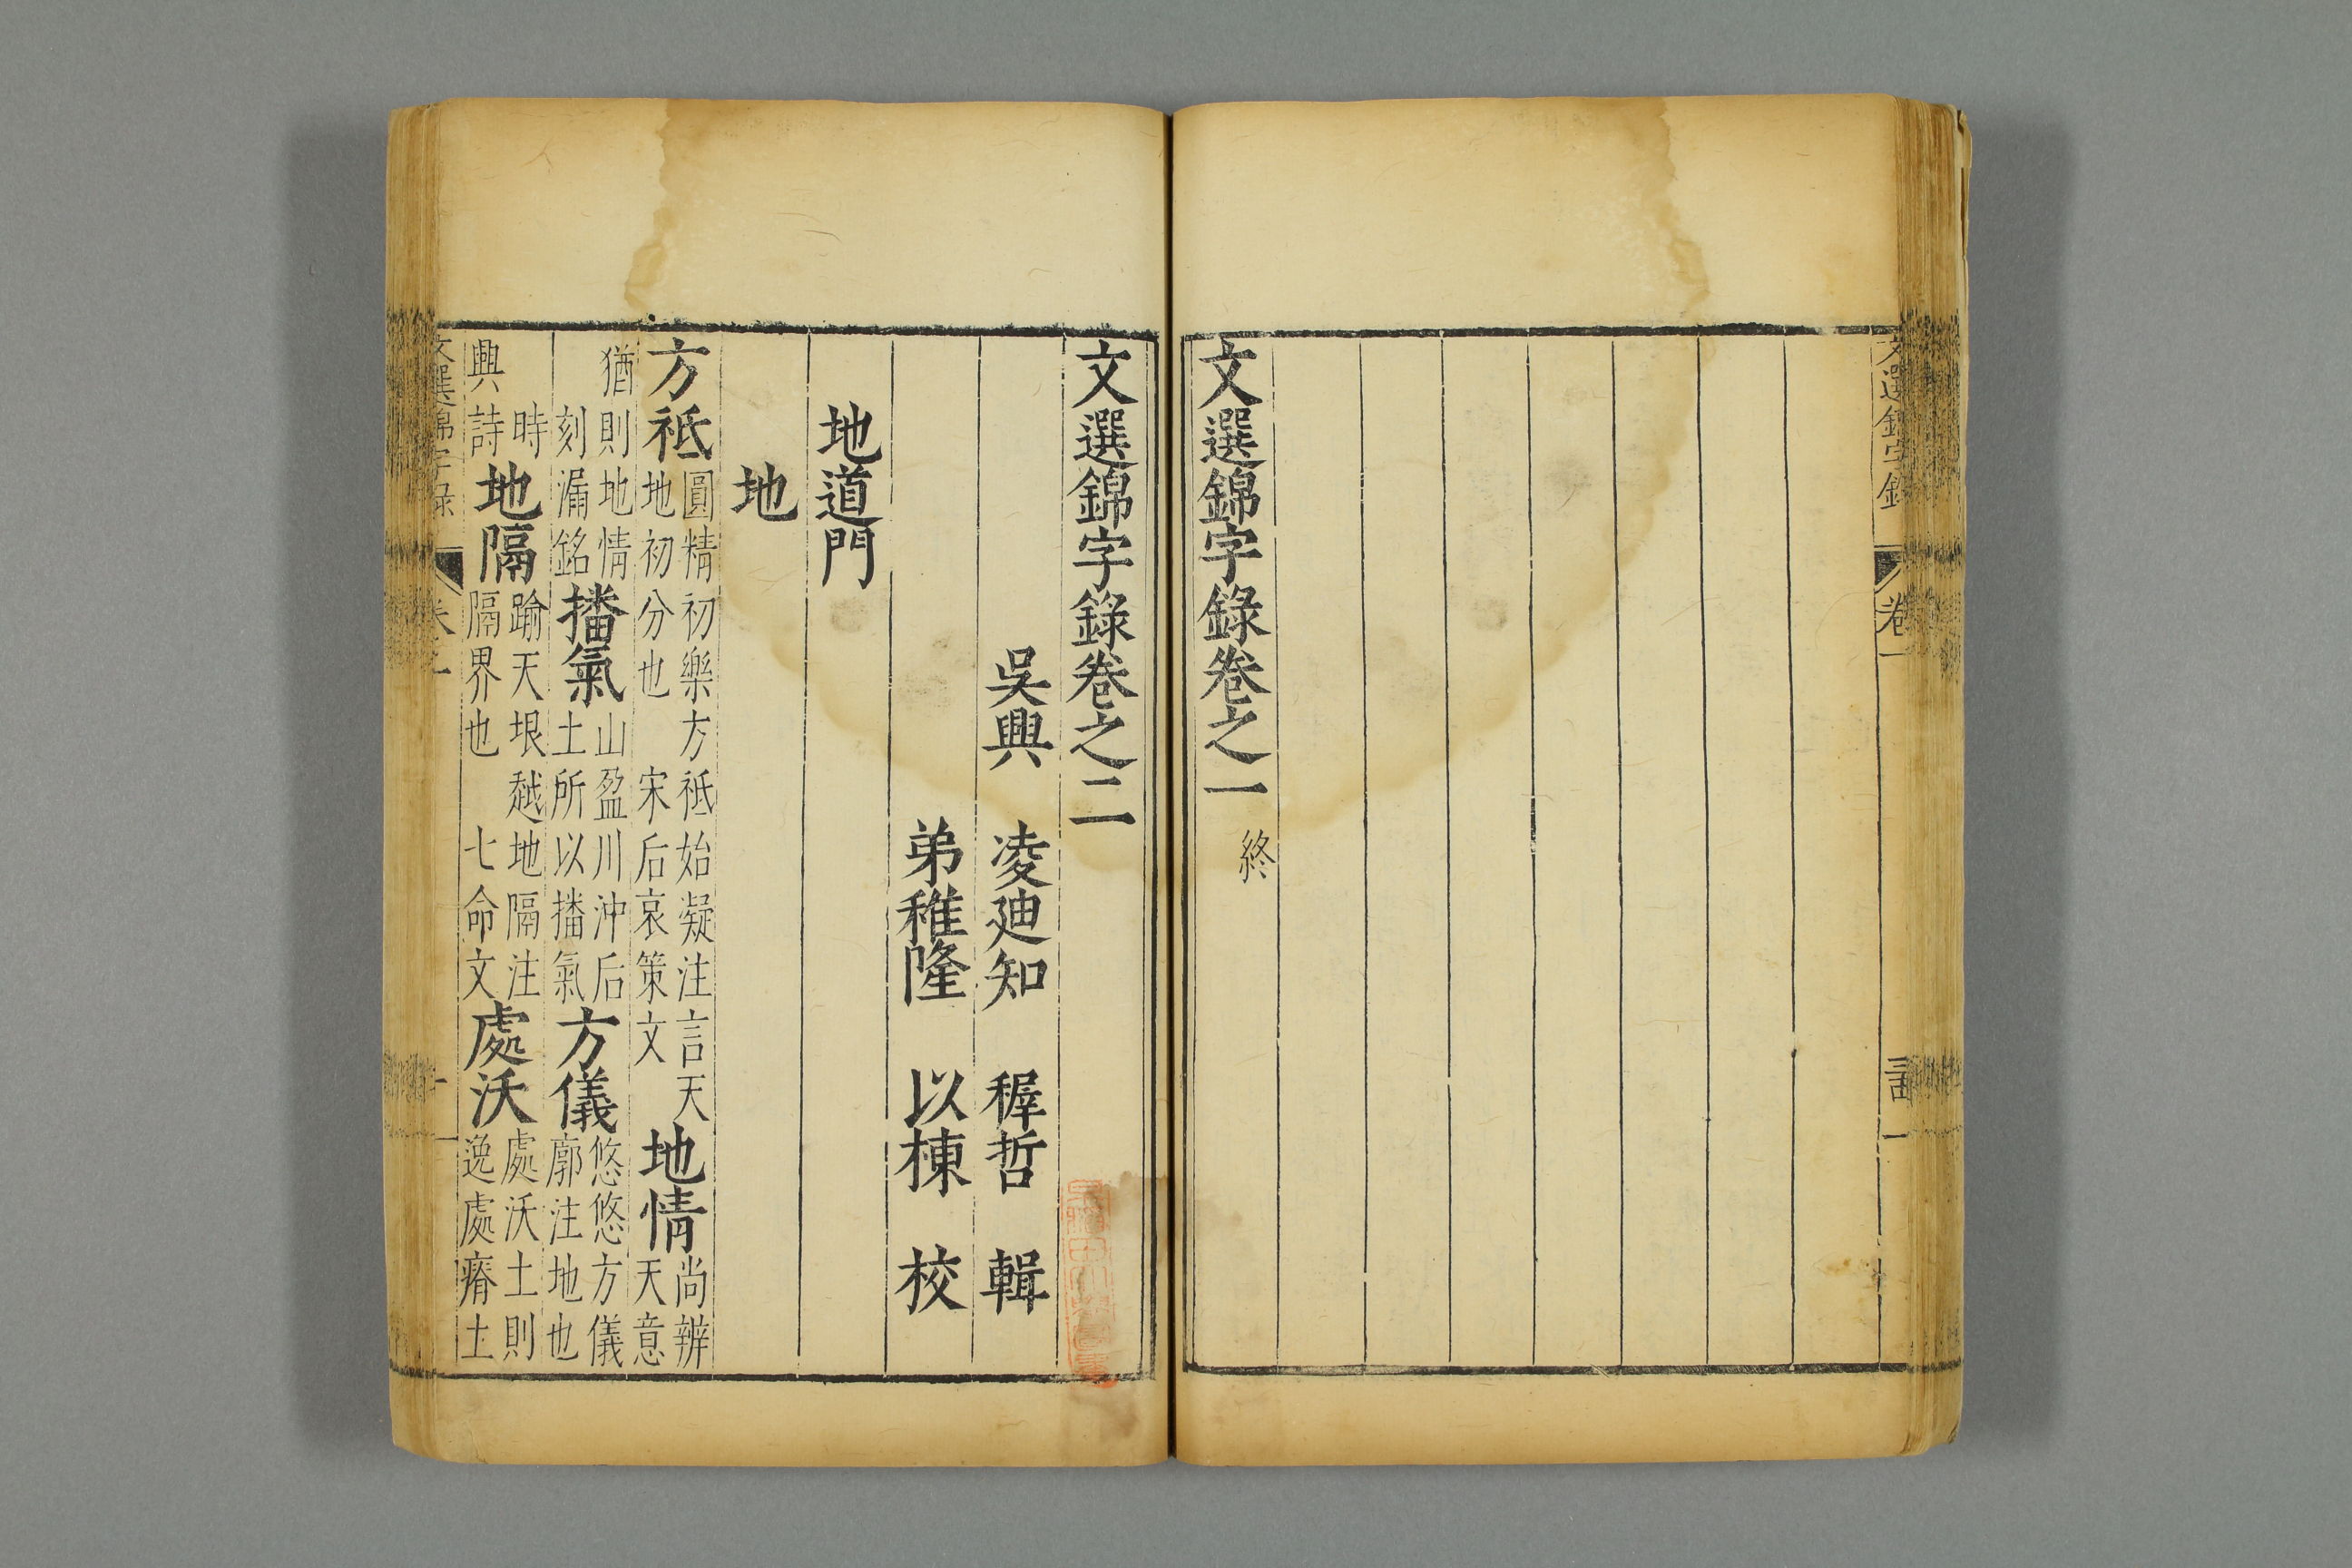 文選錦字錄卷之一 終
卷一
文選錦字錄卷之二
吳興 凌迪知 穉哲 輯
弟稚隆 以棟 校
地道門
地
方祗 圓精初樂方祗始凝注言天
地初分也 宋后哀策文
地情 尚辨
天意
猶則地情
刻漏銘
播氣 山盈川沖后
土所以播氣
方儀 悠悠方儀
廓注地也
時
興詩
地隔 踰天垠越地隔注
隔界也 七命文
處沃 處沃土則
逸處瘠土